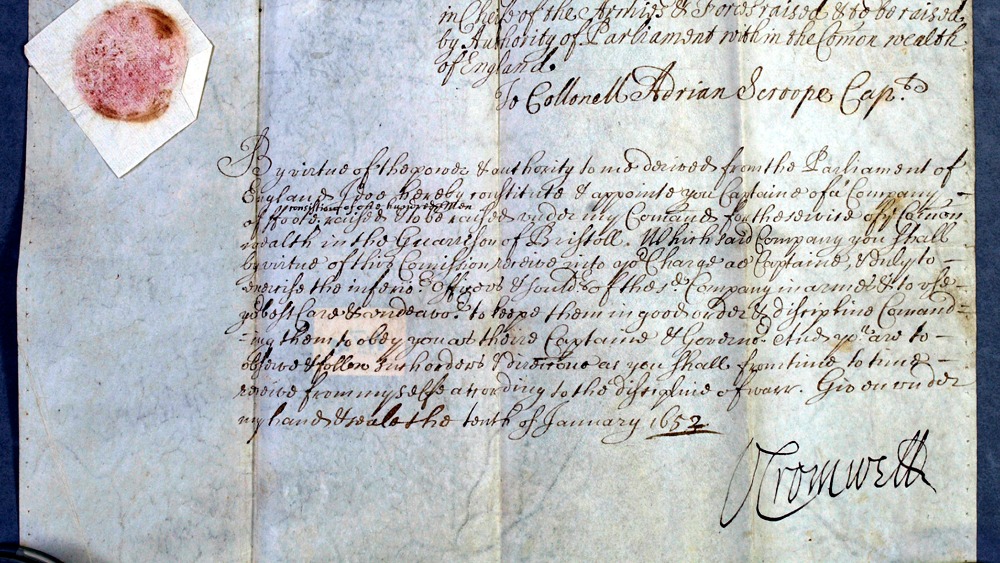 in Cheife of the Armies & Forces raised & to be raised
by Authority of Parliament within the Comon wealth
of England.
To Collonell Adrian Scroope Capt.
By virtue of the power & authority to me derived from the Parliament of
England I doe hereby constitute & appointe you Captaine of a Company
consistinge of one hundred Men
of foote raised & to be raised under my Comand for the service of ye Comon
wealth in the Guarrison of Bristoll. Which said Company you shall
by virtue of this Comission receive into yor Charge as Captaine, & duly to
exercise the inferior Officers & Sould.rs of the sd. Company in armes & to use
yor best Care & endeavor. to keepe them in good order & discipline Comand-
-ing them to obey you as theire Captaine & Governor. And you are to
observe & follow such orders & direcc͠ons as you shall from time to time
receive from my selfe according to the discipline of warr. Given under
my hand & seale the tenth of January 1652
OCromwell